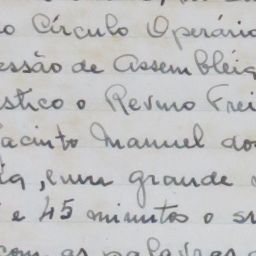 o Círculo Operário
essão de Assembléia
stico o Revmo Frei
Jacinto Manuel dos
, num grande
e 45 minutos o sr
com as palavras